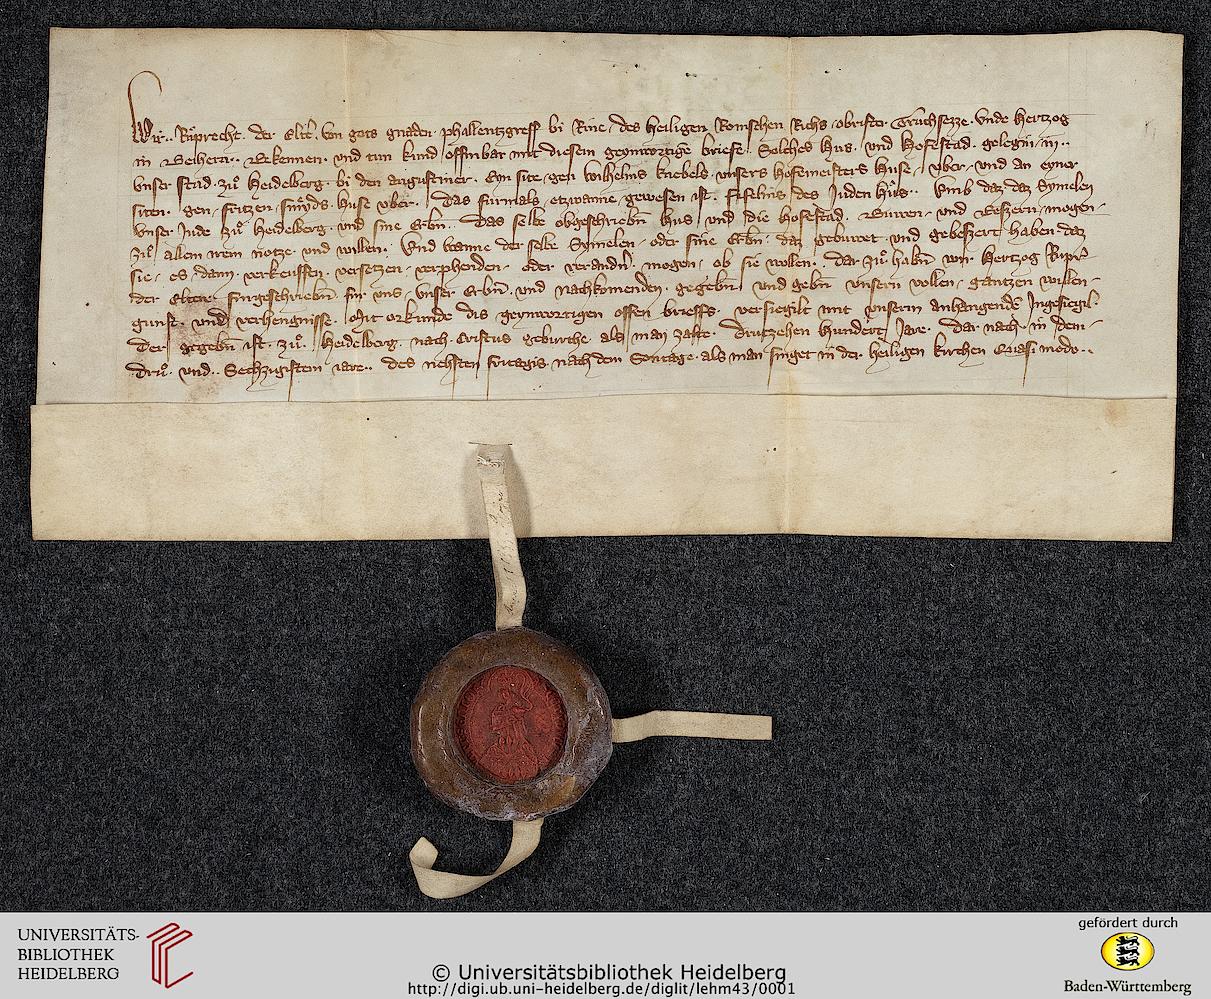 Wir .. Ruprecht . der Elt̄ . von gots gnaden . phallentzgreff bi Rine , des heiligen Romschen Richs , obrister Truchsezze . vnde hertzog
in Beihern .. Bekennen . vnd tun kund offinbar mit diesem geynwortigē briefe . Solches hus . vnd hofestad . gelegin , in ..
vnser stad . zů heidelberg . bi den augustiner . Ein site , gen wilhelms knebels . vnsers hofemeisters huse , vber , vnd an eyner
siten . gen , fritzen , smyds . huse vber . das furmals , etzwanne , gewesen ist . des Juden hus .. vmb daz daz Symelen
vnser Jude zů , heidelberg . vnd sine Erbn̄ .. das selbe obgeschriebn̄ hus , vnd die hofestad . Buwen , vnd Beszern , mogen ,
zů , allem irem notze . vnd willen . Vnd wanne der selbe Symelen , oder sine Erbn̄ , daz gebuwet , vnd gebeszert , haben daz
sie , es dann , verkeuffen , versetzen , verphenden , oder verandn̄ , mogen , ob sie wollen . dar zů habn̄ wir hertzog Rupr̄
der Elter , furgeschriebn̄ fur vns , vnser Erbn̄ . vnd nachkomenden , gegebn̄ vnd gebn̄ vnsern vollen , gantzen willen ,
gunst , vnd verhengnisse . Mit orkunde dis geynwortigen offen brieffs . versiegilt mit vnserm anhangendē Ingesiegil .
Der gegebn̄ ist , zů . heidelberg . nach Cristus geburthe als man zalte . drutzehen hundert Jare . dar nach , in dem ,
dru . vnd .. Sechzigistem , iare .. des nehsten fritagis , nach dem Sontage , als man singet in der heiligen kirchen Quasi modo ..
UNIVERSITÄTS-
BIBLIOTHEK
HEIDELBERG
© Universitätsbibliothek Heidelberg
http://digi.ub.uni-heidelberg.de/diglit/lehm43/0001
gefördert durch
Baden-Württemberg